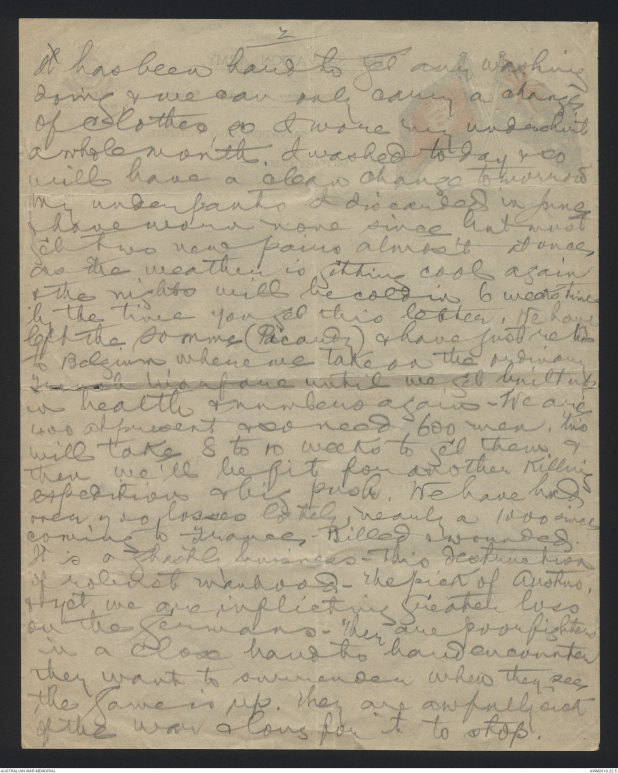 2
It has been hard to get any washing
doing & we can only carry a change
of clothes, so I wore my undershirt
a whole month. I washed today & so
will have a clean change tomorrow
My underpants I discarded in June
& have worn none since but must
get two new pairs almost at once,
as the weather is getting cool again
& the nights will be cold in 6 weeks time
by the time you get this letter. We have
left the Somme (Picardy) & have just
to Belgium where we take on the ordinary
Trench Warfare until we get built up
in health & numbers again - We are
400 at present & so need 600 men, this
will take 8 to 10 weeks to get them &
then we'll be fit for another Killing
expedition & big push. We have had
very losses lately, nearly a 1000 since
coming to France - Killed & wounded.
It is a ghastly business - this destruction
of robust manhood - the pick of Austra.
& yet we are inflicting greater loss
on the Germans - They are poor fighters
in a close hand to hand encounter
they want to surrender when they see
the game is up. They are awfully sick
of the war & long for it to stop.
AUSTRALIAN WAR MEMORIAL